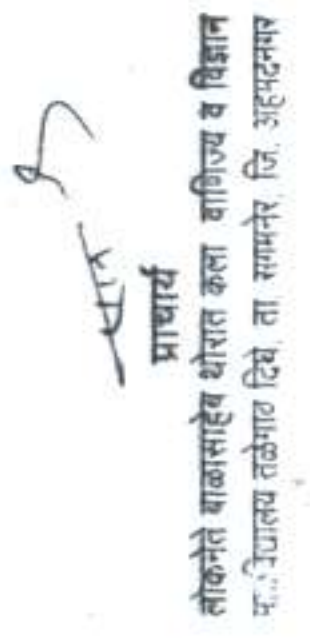 प्राचार्य
लोकनेते बाळासाहेब थोरात कला वाणिज्य व विज्ञान
तळेगाव दिघे, ता संगमनेर, जि. अहमदनगर